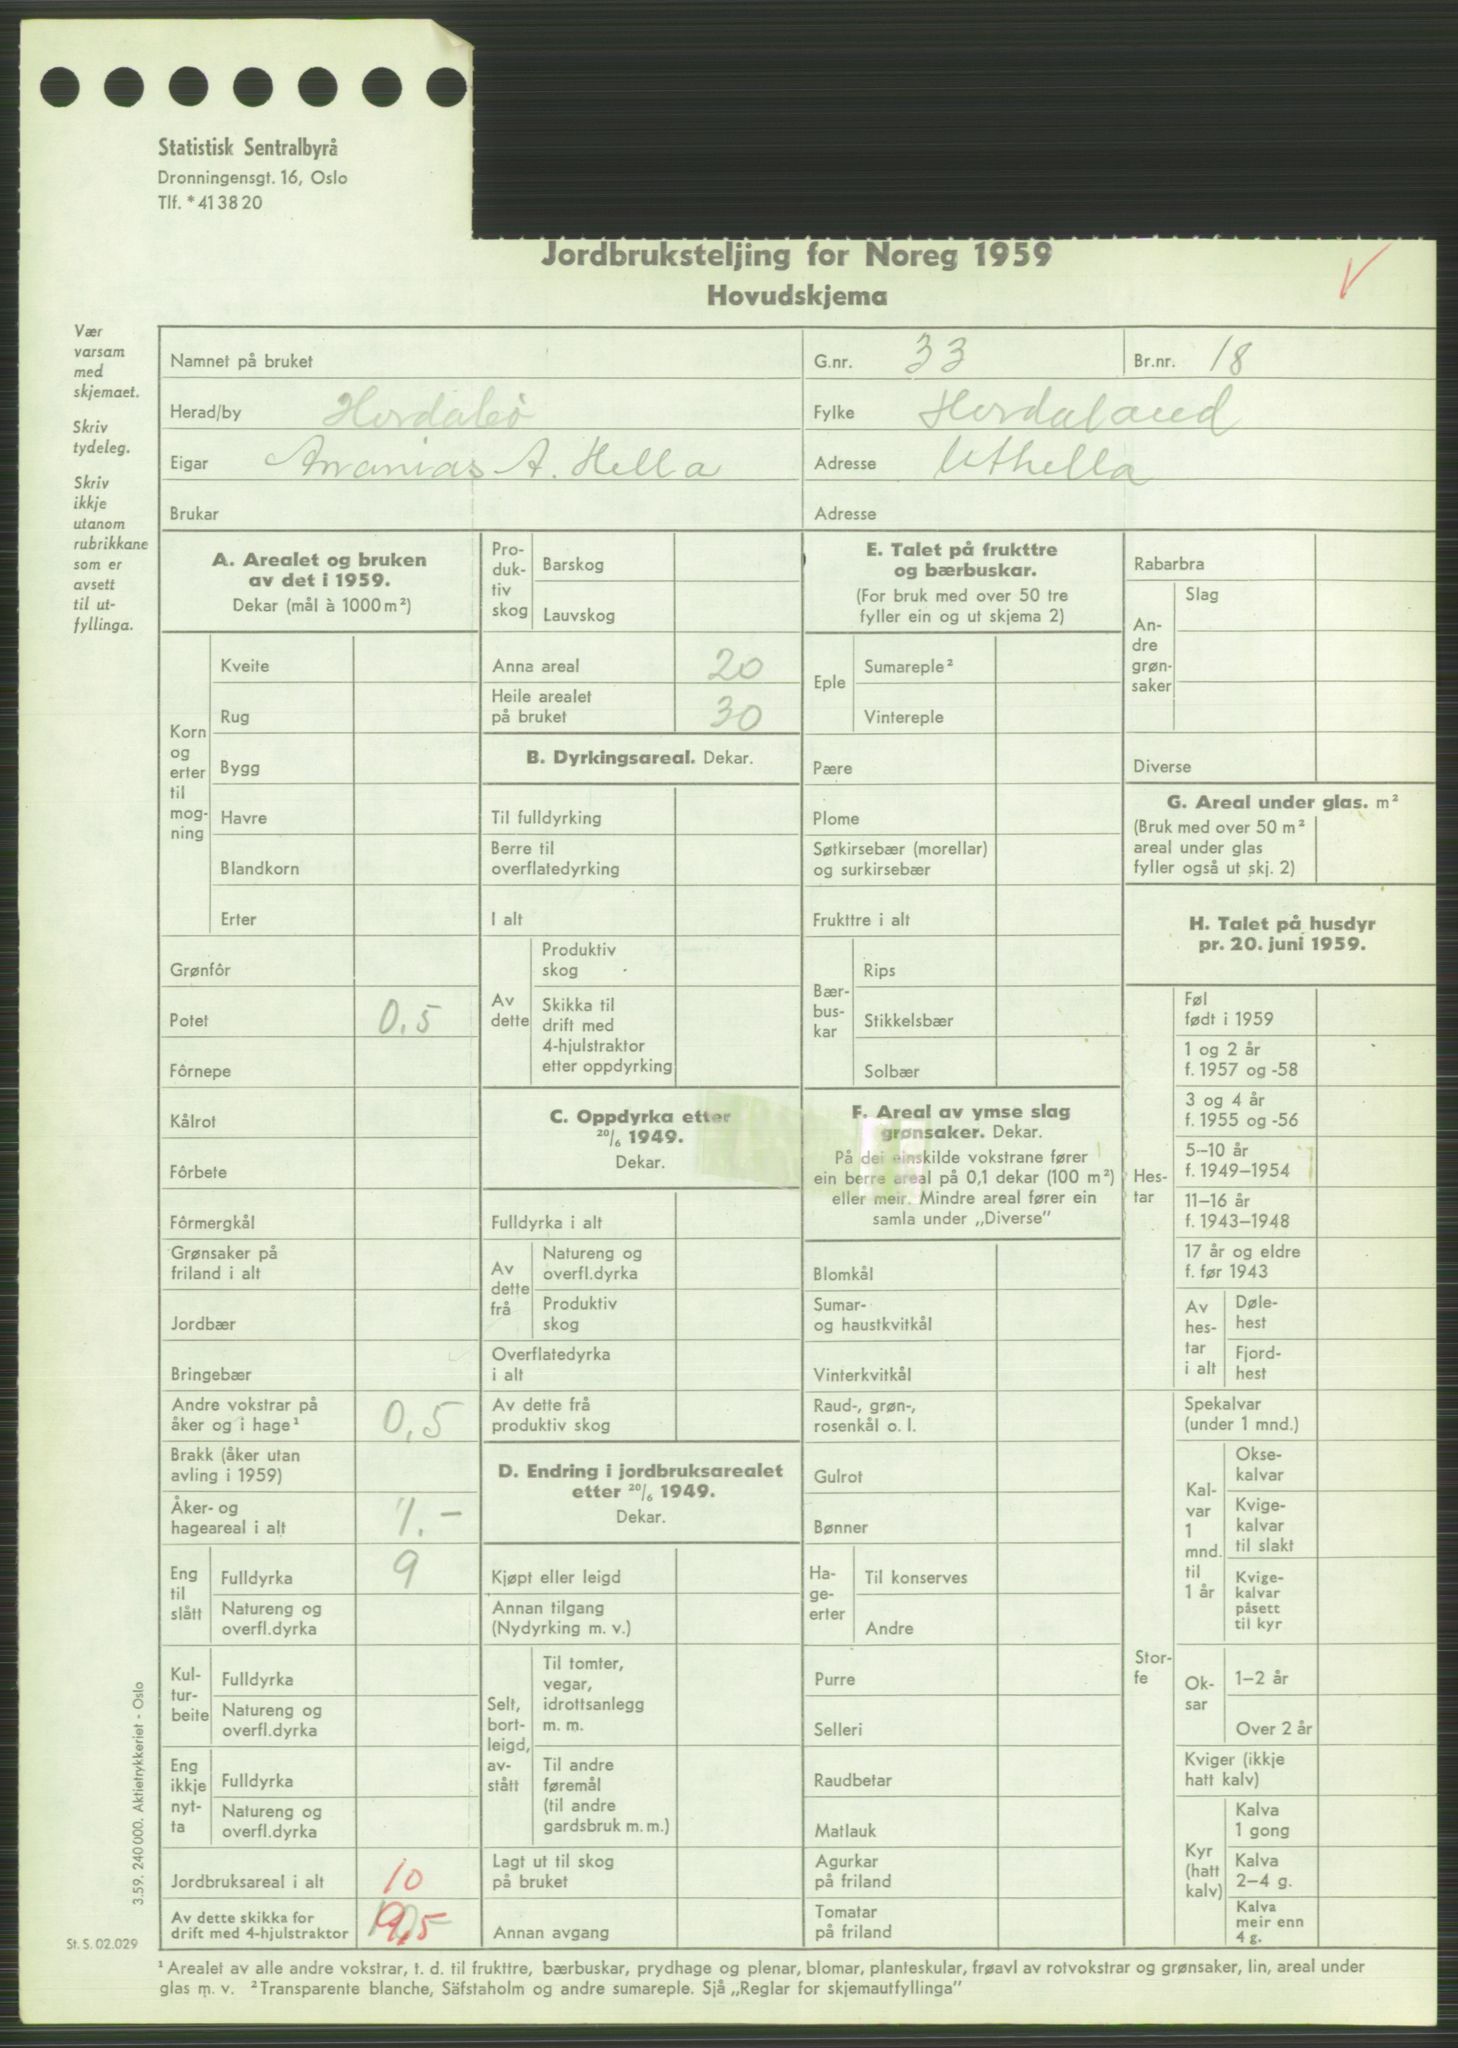 Statistisk Sentralbyrå
Dronningensgt. 16, Oslo
Tlf. *413820
Jordbruksteljing for Noreg 1959
Hovudskjema
Vær
varsam
med
skjemaet.
Skriv
tydeleg.
Skriv
ikkje
utanom
rubrikkane
som er
avsett
til ut-
fyllinga.
Namnet på bruket
G.nr. 33
Br.nr. 18
Herad/by Herdabø
Fylke Hordaland
Eigar Ananias A. Hella
Adresse Uthella
Brukar
Adresse
A. Arealet og bruken
av det i 1959.
Dekar (mål à 1000 m²)
Korn
og
erter
til
mog-
ning
Kveite
Rug
Bygg
Havre
Blandkorn
Erter
Grønfôr
Potet 0,5
Fôrnepe
Kålrot
Fôrbete
Fôrmergkål
Grønsaker på
friland i alt
Jordbær
Bringebær
Andre vokstrar på
åker og i hage¹ 0,5
Brakk (åker utan
avling i 1959)
Åker- og
hageareal i alt 1.-
Eng
til
slått
Fulldyrka 9
Natureng og
overfl.dyrka
Kul-
tur-
beite
Fulldyrka
Natureng og
overfl.dyrka
Eng
ikkje
nyt-
ta
Fulldyrka
Natureng og
overfl.dyrka
Jordbruksareal i alt 10
Av dette skikka for
drift med 4-hjulstraktor 9,5
Pro-
duk-
tiv
skog
Barskog
Lauvskog
Anna areal 20
Heile arealet
på bruket 30
B. Dyrkingsareal. Dekar.
Til fulldyrking
Berre til
overflatedyrking
I alt
Av
dette
Produktiv
skog
Skikka til
drift med
4-hjulstraktor
etter oppdyrking
C. Oppdyrka etter
20/6 1949.
Dekar.
Fulldyrka i alt
Av
dette
frå
Natureng og
overfl.dyrka
Produktiv
skog
Overflatedyrka
i alt
Av dette frå
produktiv skog
D. Endring i jordbruksarealet
etter 20/6 1949.
Dekar.
Kjøpt eller leigd
Annan tilgang
(Nydyrking m. v.)
Selt,
bort-
leigd,
av-
stått
Til tomter,
vegar,
idrottsanlegg
m. m.
Til andre
føremål
(til andre
gardsbruk m. m.)
Lagt ut til skog
på bruket
Annan avgang
E. Talet på frukttre
og bærbuskar.
(For bruk med over 50 tre
fyller ein og ut skjema 2)
Eple
Sumareple²
Vintereple
Pære
Plome
Søtkirsebær (morellar)
og surkirsebær
Frukttre i alt
Bær-
bus-
kar
Rips
Stikkelsbær
Solbær
F. Areal av ymse slag
grønsaker. Dekar.
På dei einskilde vokstrane fører
ein berre areal på 0,1 dekar (100 m²)
eller meir. Mindre areal fører ein
samla under „Diverse”
Blomkål
Sumar-
og haustkvitkål
Vinterkvitkål
Raud-, grøn-,
rosenkål o. l.
Gulrot
Bønner
Ha-
ge-
erter
Til konserves
Andre
Purre
Selleri
Raudbetar
Matlauk
Agurkar
på friland
Tomatar
på friland
Rabarbra
An-
dre
grøn-
saker
Slag
Diverse
G. Areal under glas. m²
(Bruk med over 50 m²
areal under glas
fyller også ut skj. 2)
H. Talet på husdyr
pr. 20. juni 1959.
Hes-
tar
Føl
født i 1959
1 og 2 år
f. 1957 og -58
3 og 4 år
f. 1955 og -56
5–10 år
f. 1949–1954
11–16 år
f. 1943–1948
17 år og eldre
f. før 1943
Av
hes-
tar
i alt
Døle-
hest
Fjord-
hest
Stor-
fe
Spekalvar
(under 1 mnd.)
Kal-
var
1
mnd.
til
1 år
Okse-
kalvar
Kvige-
kalvar
til slakt
Kvige-
kalvar
påsett
til kyr
Ok-
sar
1–2 år
Over 2 år
Kviger (ikkje
hatt kalv)
Kyr
(hatt
kalv)
Kalva
1 gong
Kalva
2–4 g.
Kalva
meir enn
4 g.
3.59. 240 000. Aktietrykkeriet - Oslo
St. S. 02.029
¹ Arealet av alle andre vokstrar, t. d. til frukttre, bærbuskar, prydhage og plenar, blomar, planteskular, frøavl av rotvokstrar og grønsaker, lin, areal under
glas m. v. ² Transparente blanche, Säfstaholm og andre sumareple. Sjå „Reglar for skjemautfyllinga”